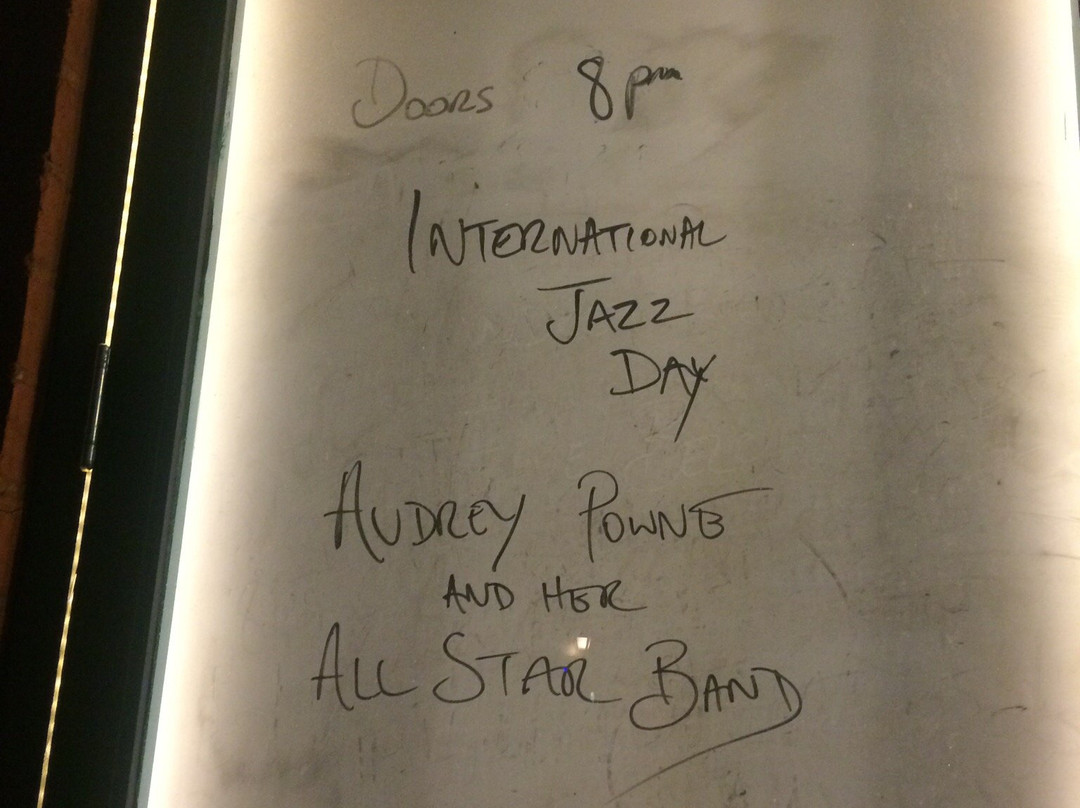 DOORS 8pm
INTERNATIONAL
JAZZ
DAY
AUDREY POWNE
AND HER
ALL STAR BAND